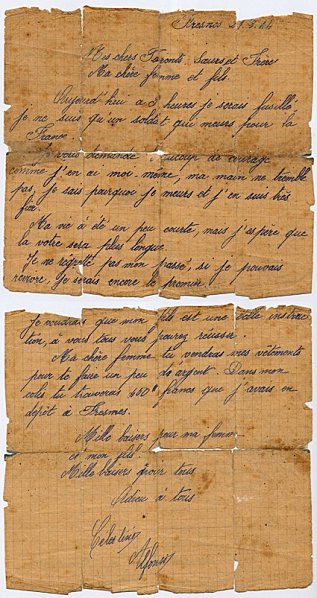 Fresnes 21.2.44
Mes chers Parents, Sœurs et Frère
Ma chère femme et fils.
Aujourd'hui à 3 heures je serais fusillé
je ne suis qu'un soldat qui meurs pour la
France.
Je vous demande beaucoup de courage
comme j'en ai moi-même, ma main ne tremble
pas, je sais pourquoi je meurs et j'en suis très
fier.
Ma vie à été un peu courte, mais j'espère que
la votre sera plus longue.
Je ne regrette pas mon passé, si je pouvais
revivre, je serais encore le premier.
Je voudrais que mon fils est une belle instruc
tion, à vous tous vous pouvez réussir.
Ma chère femme tu vendras mes vêtements
pour te faire un peu de argent. Dans mon
colis tu trouveras francs que j'avais en
depôt à Fresnes.
Mille baisers pour ma femme
et mon fils.
Mille baisers pour tous
Adieu à tous
Celestino
Alfonso